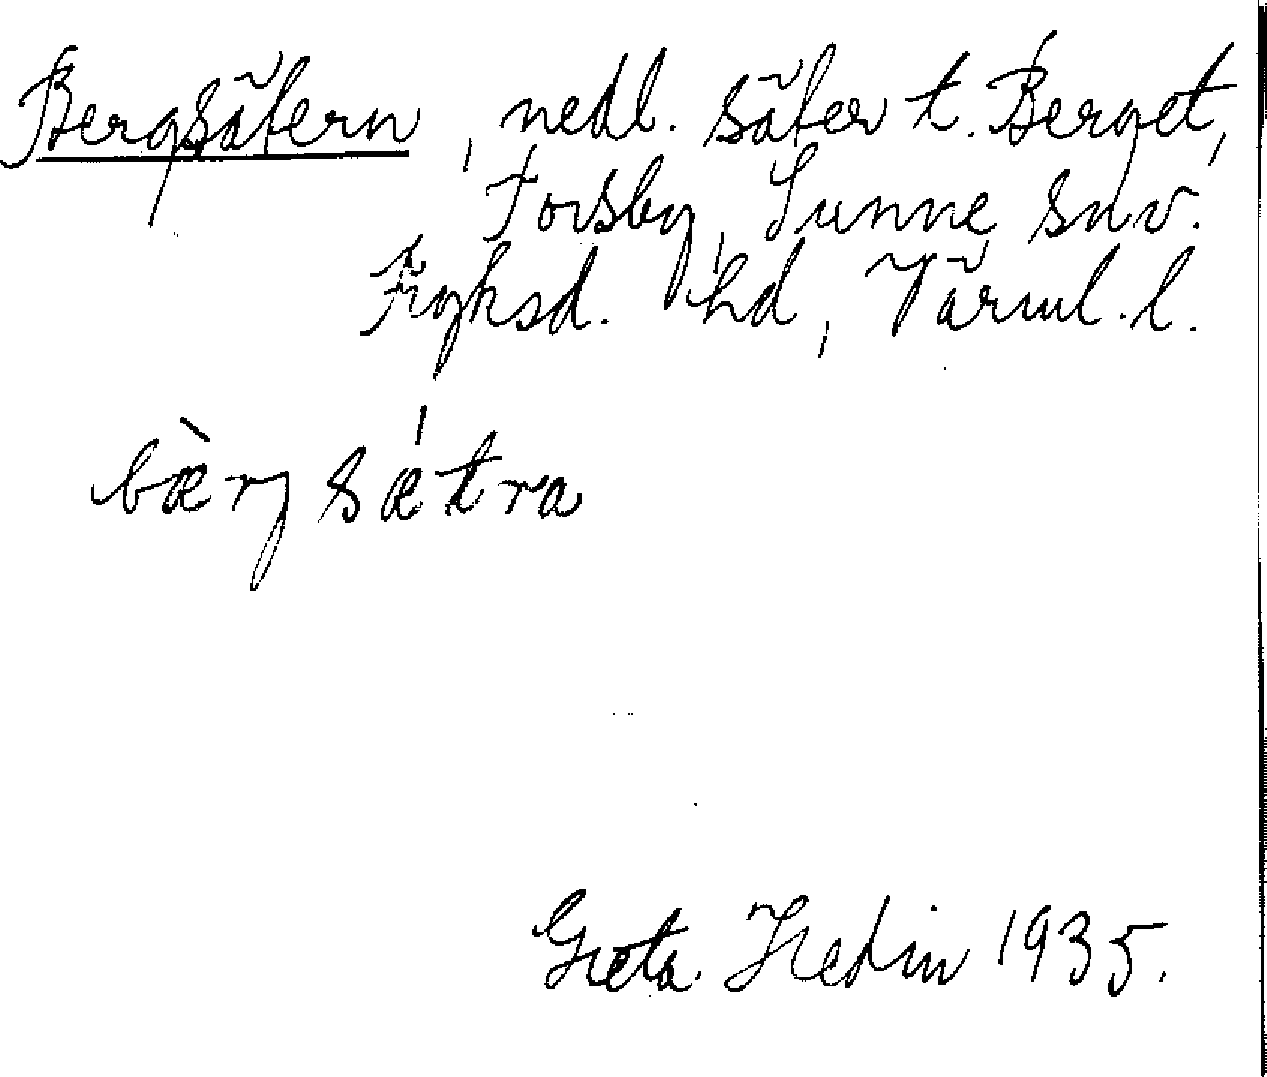 Bergsätern, nedl. säter t. Berget,
Forsby, Sunne snv.
Fryksd. hd, Värml. l.
bærjsætra
Greta Hedin 1935.